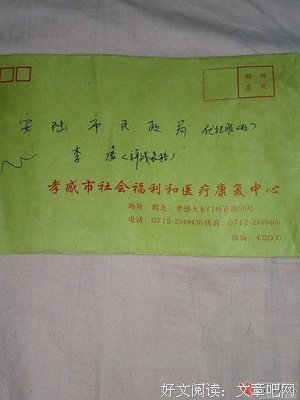 贴 邮
票 处
安陆市民政局
李
孝感市社会福利和医疗康复中心
地址：湖北·孝感大东门外正街50号
电话：0712-2349438 传真：0712-2349469
邮编：432000
好文阅读：文章吧网